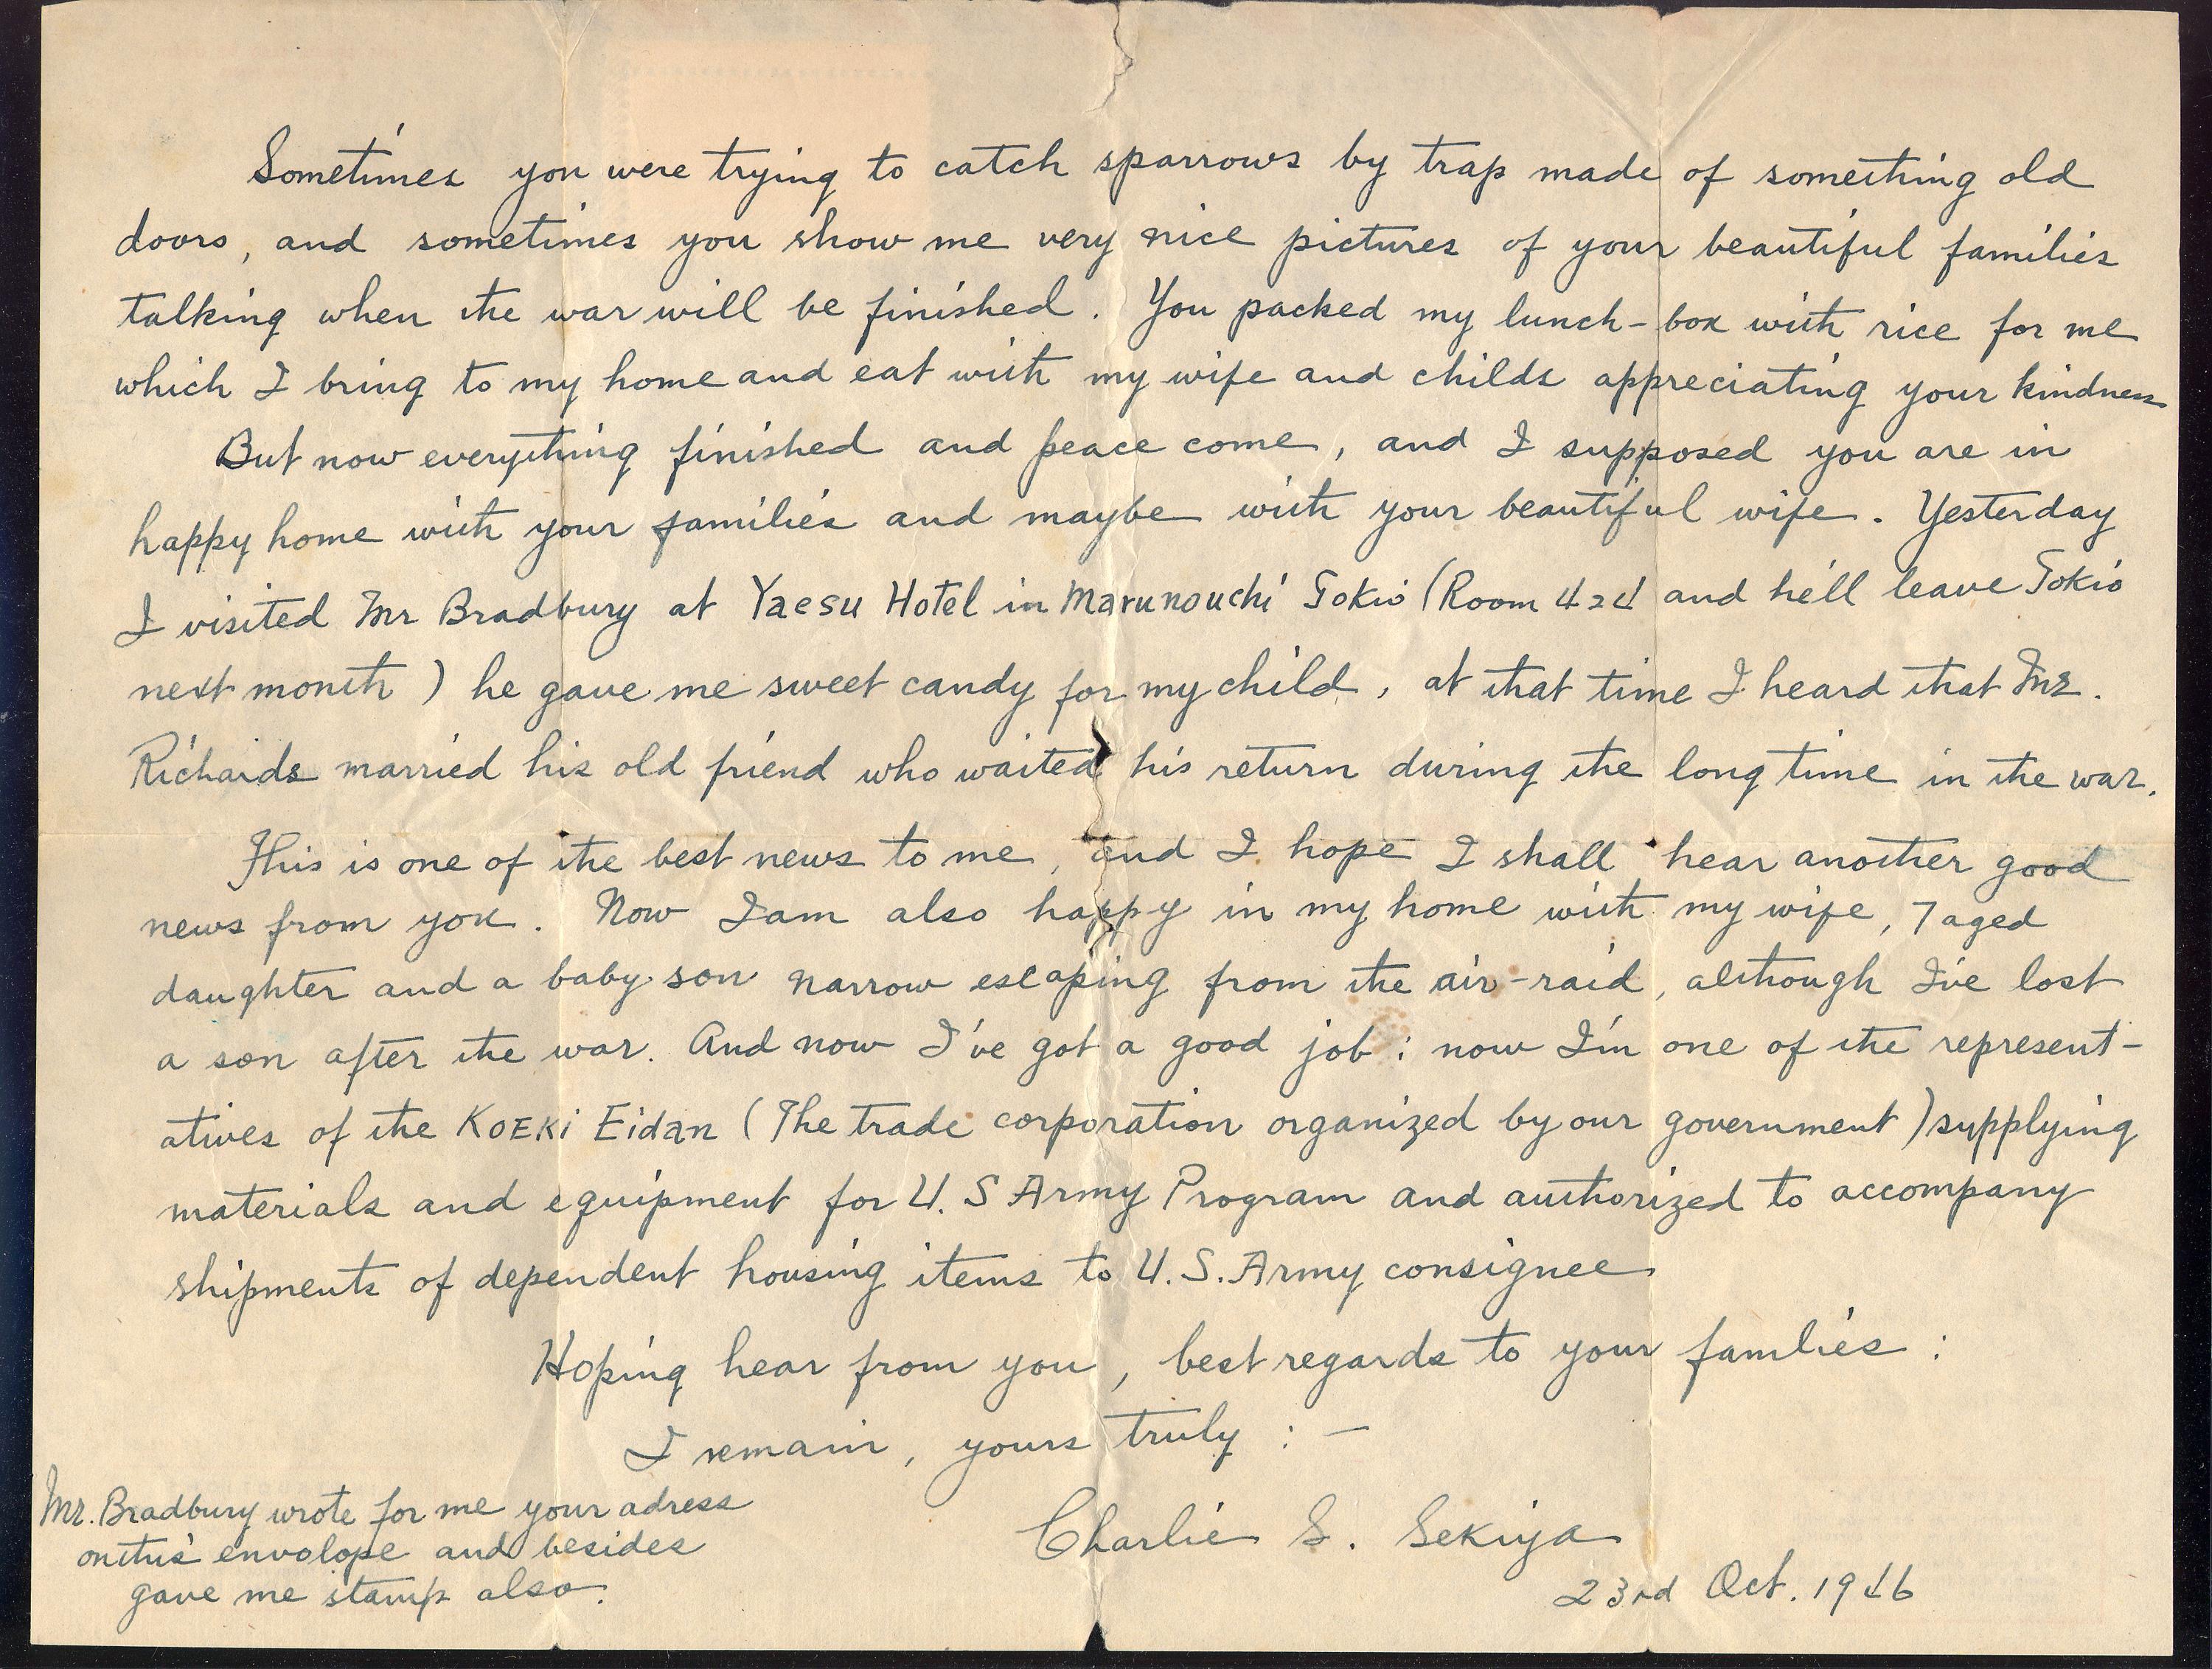 Sometimes you were trying to catch sparrows by trap made of something old
doors, and sometimes you show me very nice pictures of your beautiful families
talking when the war will be finished. You packed my lunch-box with rice for me
which I bring to my home and eat with my wife and childs appreciating your kindness
But now everything finished and peace come, and I supposed you are in
happy home with your families and maybe with your beautiful wife. Yesterday
I visited Mr Bradbury at Yaesu Hotel in Marunouchi Tokio (Room 424 and he'll leave Tokio
next month) he gave me sweet candy for my child, at that time I heard that Mr.
Richards married his old friend who waited his return during the long time in the war.
This is one of the best news to me, and I hope I shall hear another good
news from you. Now I am also happy in my home with my wife, 7 aged
daughter and a baby son narrow escaping from the air-raid, although I've lost
a son after the war. And now I've got a good job: now I'm one of the represent-
atives of the KOEKi Eidan (The trade corporation organized by our government) supplying
materials and equipment for U.S Army Program and authorized to accompany
shipments of dependent housing items to U.S. Army consignee
Hoping hear from you, best regards to your families:
I remain, yours truly:-
Charlie S. Sekiya
23rd Oct. 1946
Mr. Bradbury wrote for me your adress
on this envolope and besides
gave me stamp also.